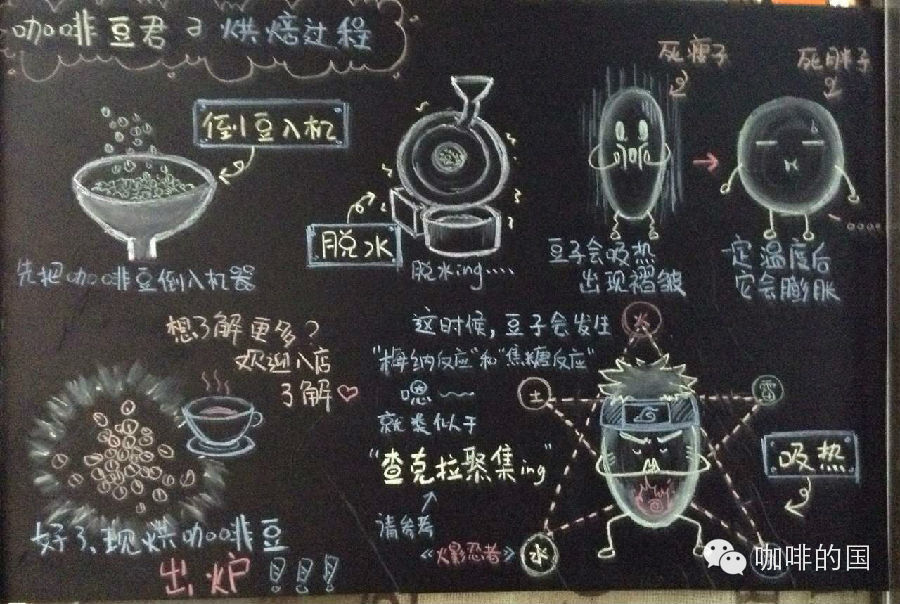 咖啡豆君の烘焙过程
倒豆入机
先把咖啡豆倒入机器
脱水
脱水ing....
死瘦子
豆子会吸热
出现褶皱
死胖子
一定温度后
它会膨胀
这时候，豆子会发生
"梅纳反应"和"焦糖反应"
嗯~~
就类似于
"查克拉聚集ing"
请参考
《火影忍者》
火
土
雷
水
吸热
想了解更多？
欢迎入店
了解♡
好了、现烘咖啡豆
出炉!!!
咖啡的国